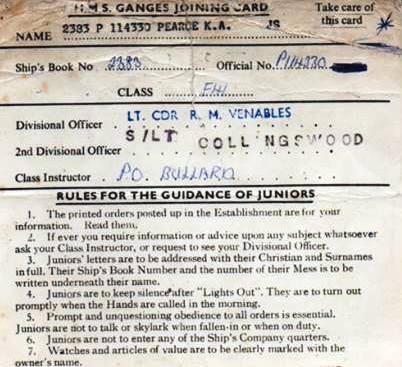 H.M.S. GANGES JOINING CARD
Take care of
this card
NAME 2383 P 114330 PEARCE K.A. JS
Ship's Book No 2383 Official No. P114330
CLASS
Divisional Officer LT. CDR R. M. VENABLES
2nd Divisional Officer S/LT COLLINGSWOOD
Class Instructor P.O. BULLARD
RULES FOR THE GUIDANCE OF JUNIORS
1. The printed orders posted up in the Establishment are for your
information. Read them.
2. If ever you require information or advice upon any subject whatsoever
ask your Class Instructor, or request to see your Divisional Officer.
3. Juniors' letters are to be addressed with their Christian and Surnames
in full. Their Ship's Book Number and the number of their Mess is to be
written underneath their name.
4. Juniors are to keep silence after "Lights Out". They are to turn out
promptly when the Hands are called in the morning.
5. Prompt and unquestioning obedience to all orders is essential.
Juniors are not to talk or skylark when fallen-in or when on duty.
6. Juniors are not to enter any of the Ship's Company quarters.
7. Watches and articles of value are to be clearly marked with the
owner's name.